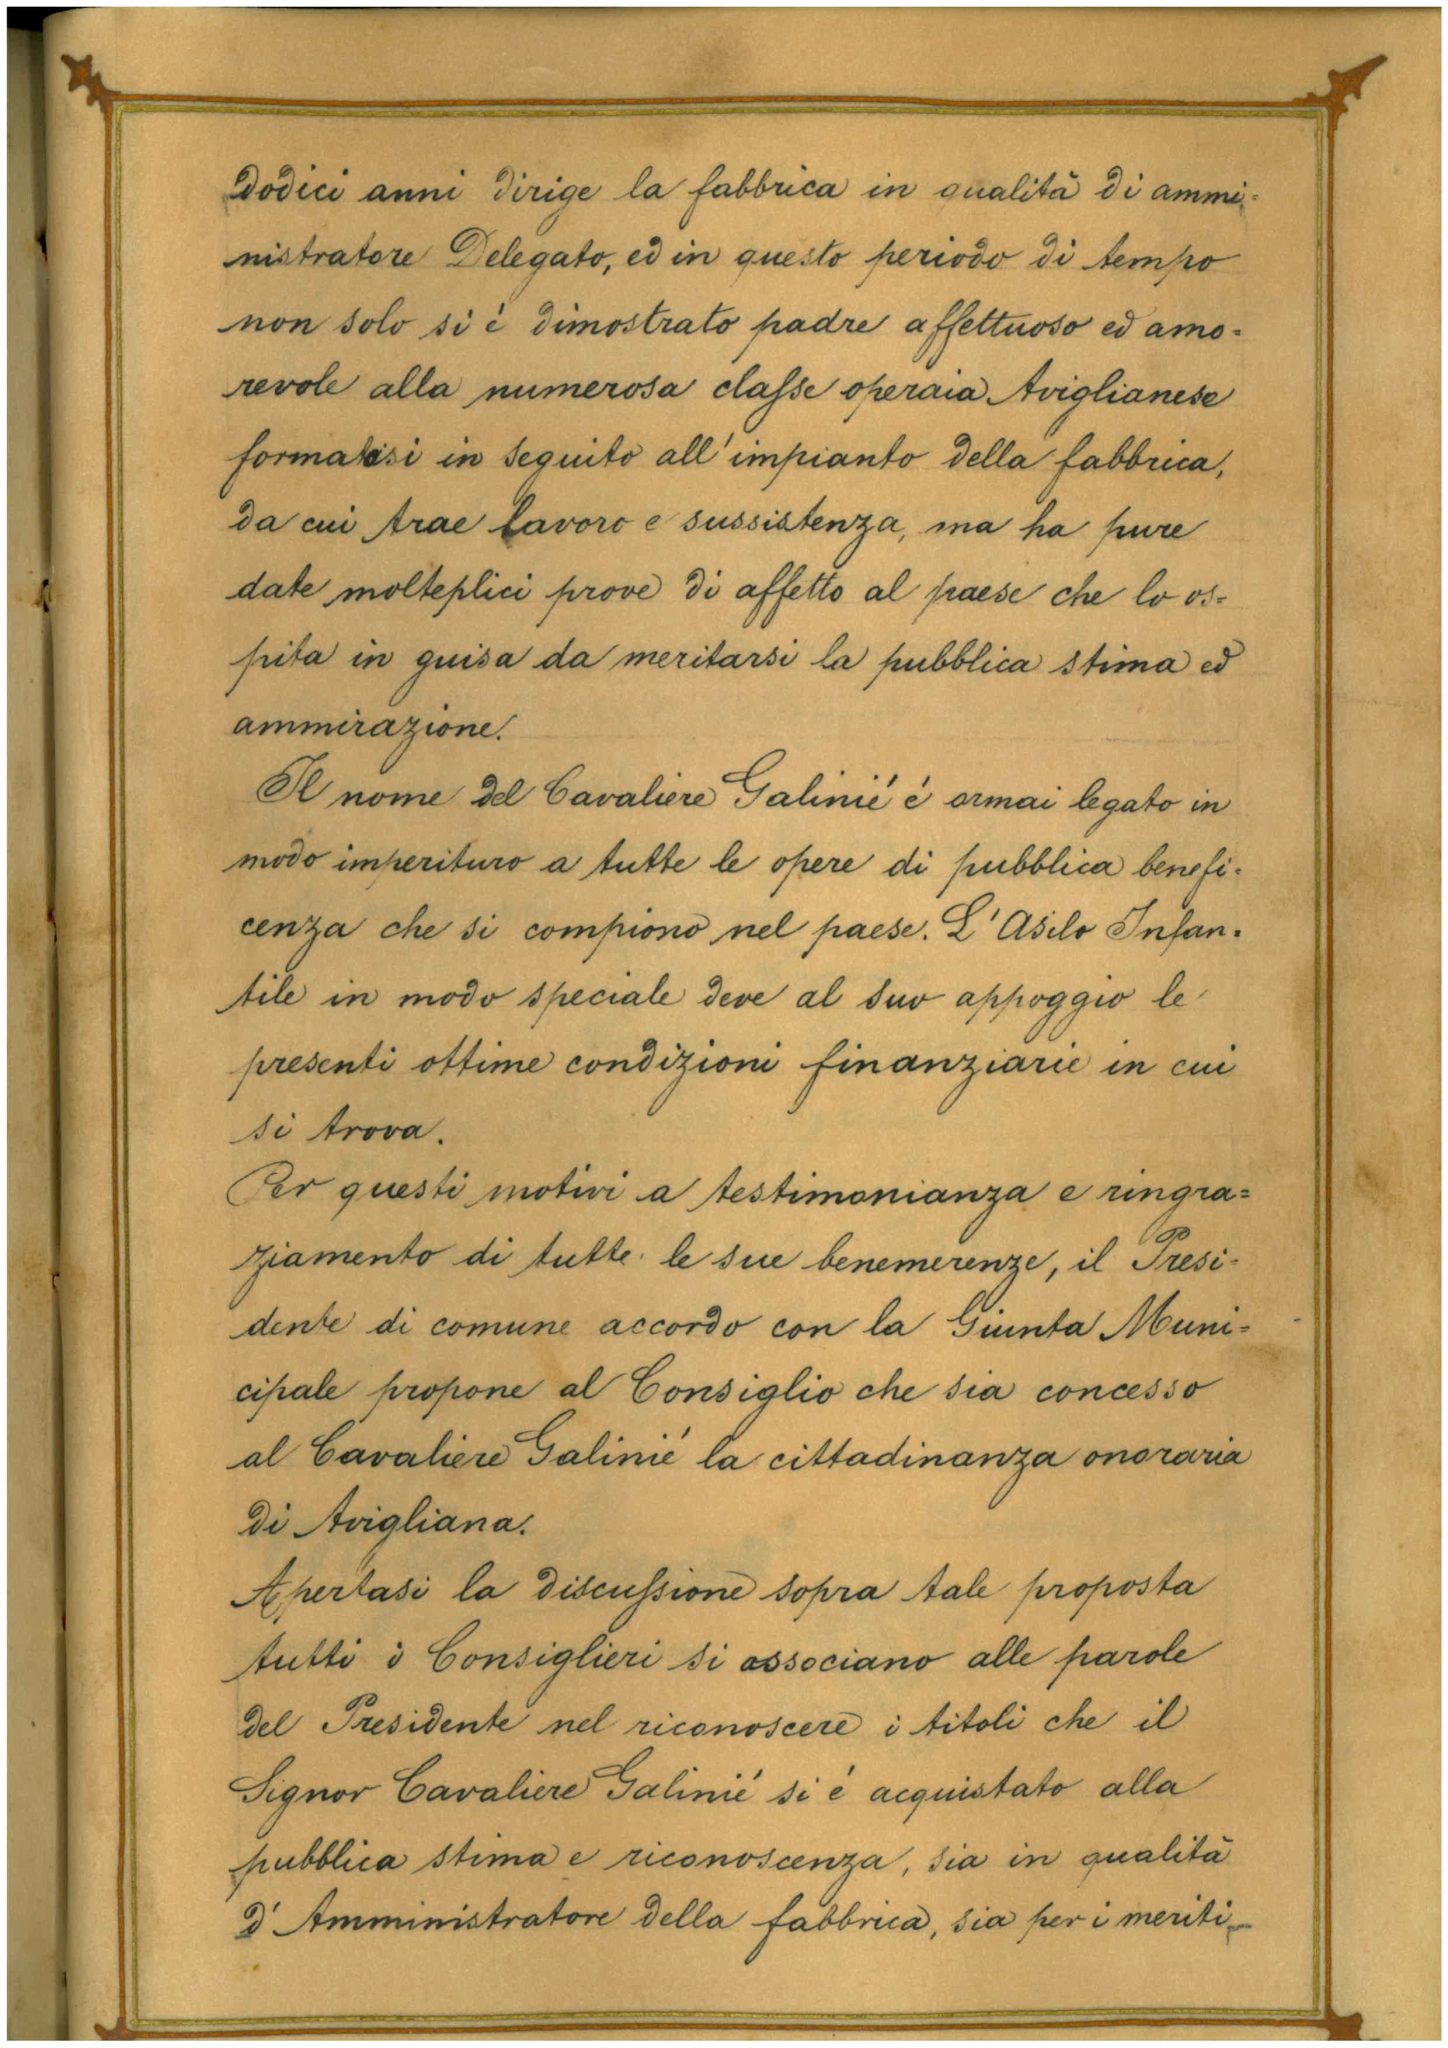 dodici anni dirige la fabbrica in qualità di ammi=
nistratore Delegato, ed in questo periodo di tempo
non solo si é dimostrato padre affettuoso ed amo=
revole alla numerosa classe operaia Aviglianese
formatasi in seguito all'impianto della fabbrica,
da cui trae lavoro e sussistenza, ma ha pure
date molteplici prove di affetto al paese che lo os=
pita in guisa da meritarsi la pubblica stima ed
ammirazione.
Il nome del Cavaliere Galinié é ormai legato in
modo imperituro a tutte le opere di pubblica benefi=
cenza che si compiono nel paese. L'Asilo Infan=
tile in modo speciale deve al suo appoggio le
presenti ottime condizioni finanziarie in cui
si trova.
Per questi motivi a testimonianza e ringra=
ziamento di tutte le sue benemerenze, il Presi=
dente di comune accordo con la Giunta Muni=
cipale propone al Consiglio che sia concesso
al Cavaliere Galinié la cittadinanza onoraria
di Avigliana.
Apertasi la discussione sopra tale proposta
tutti i Consiglieri si associano alle parole
del Presidente nel riconoscere i titoli che il
Signor Cavaliere Galinié si é acquistato alla
pubblica stima e riconoscenza, sia in qualità
d'Amministratore della fabbrica, sia per i meriti